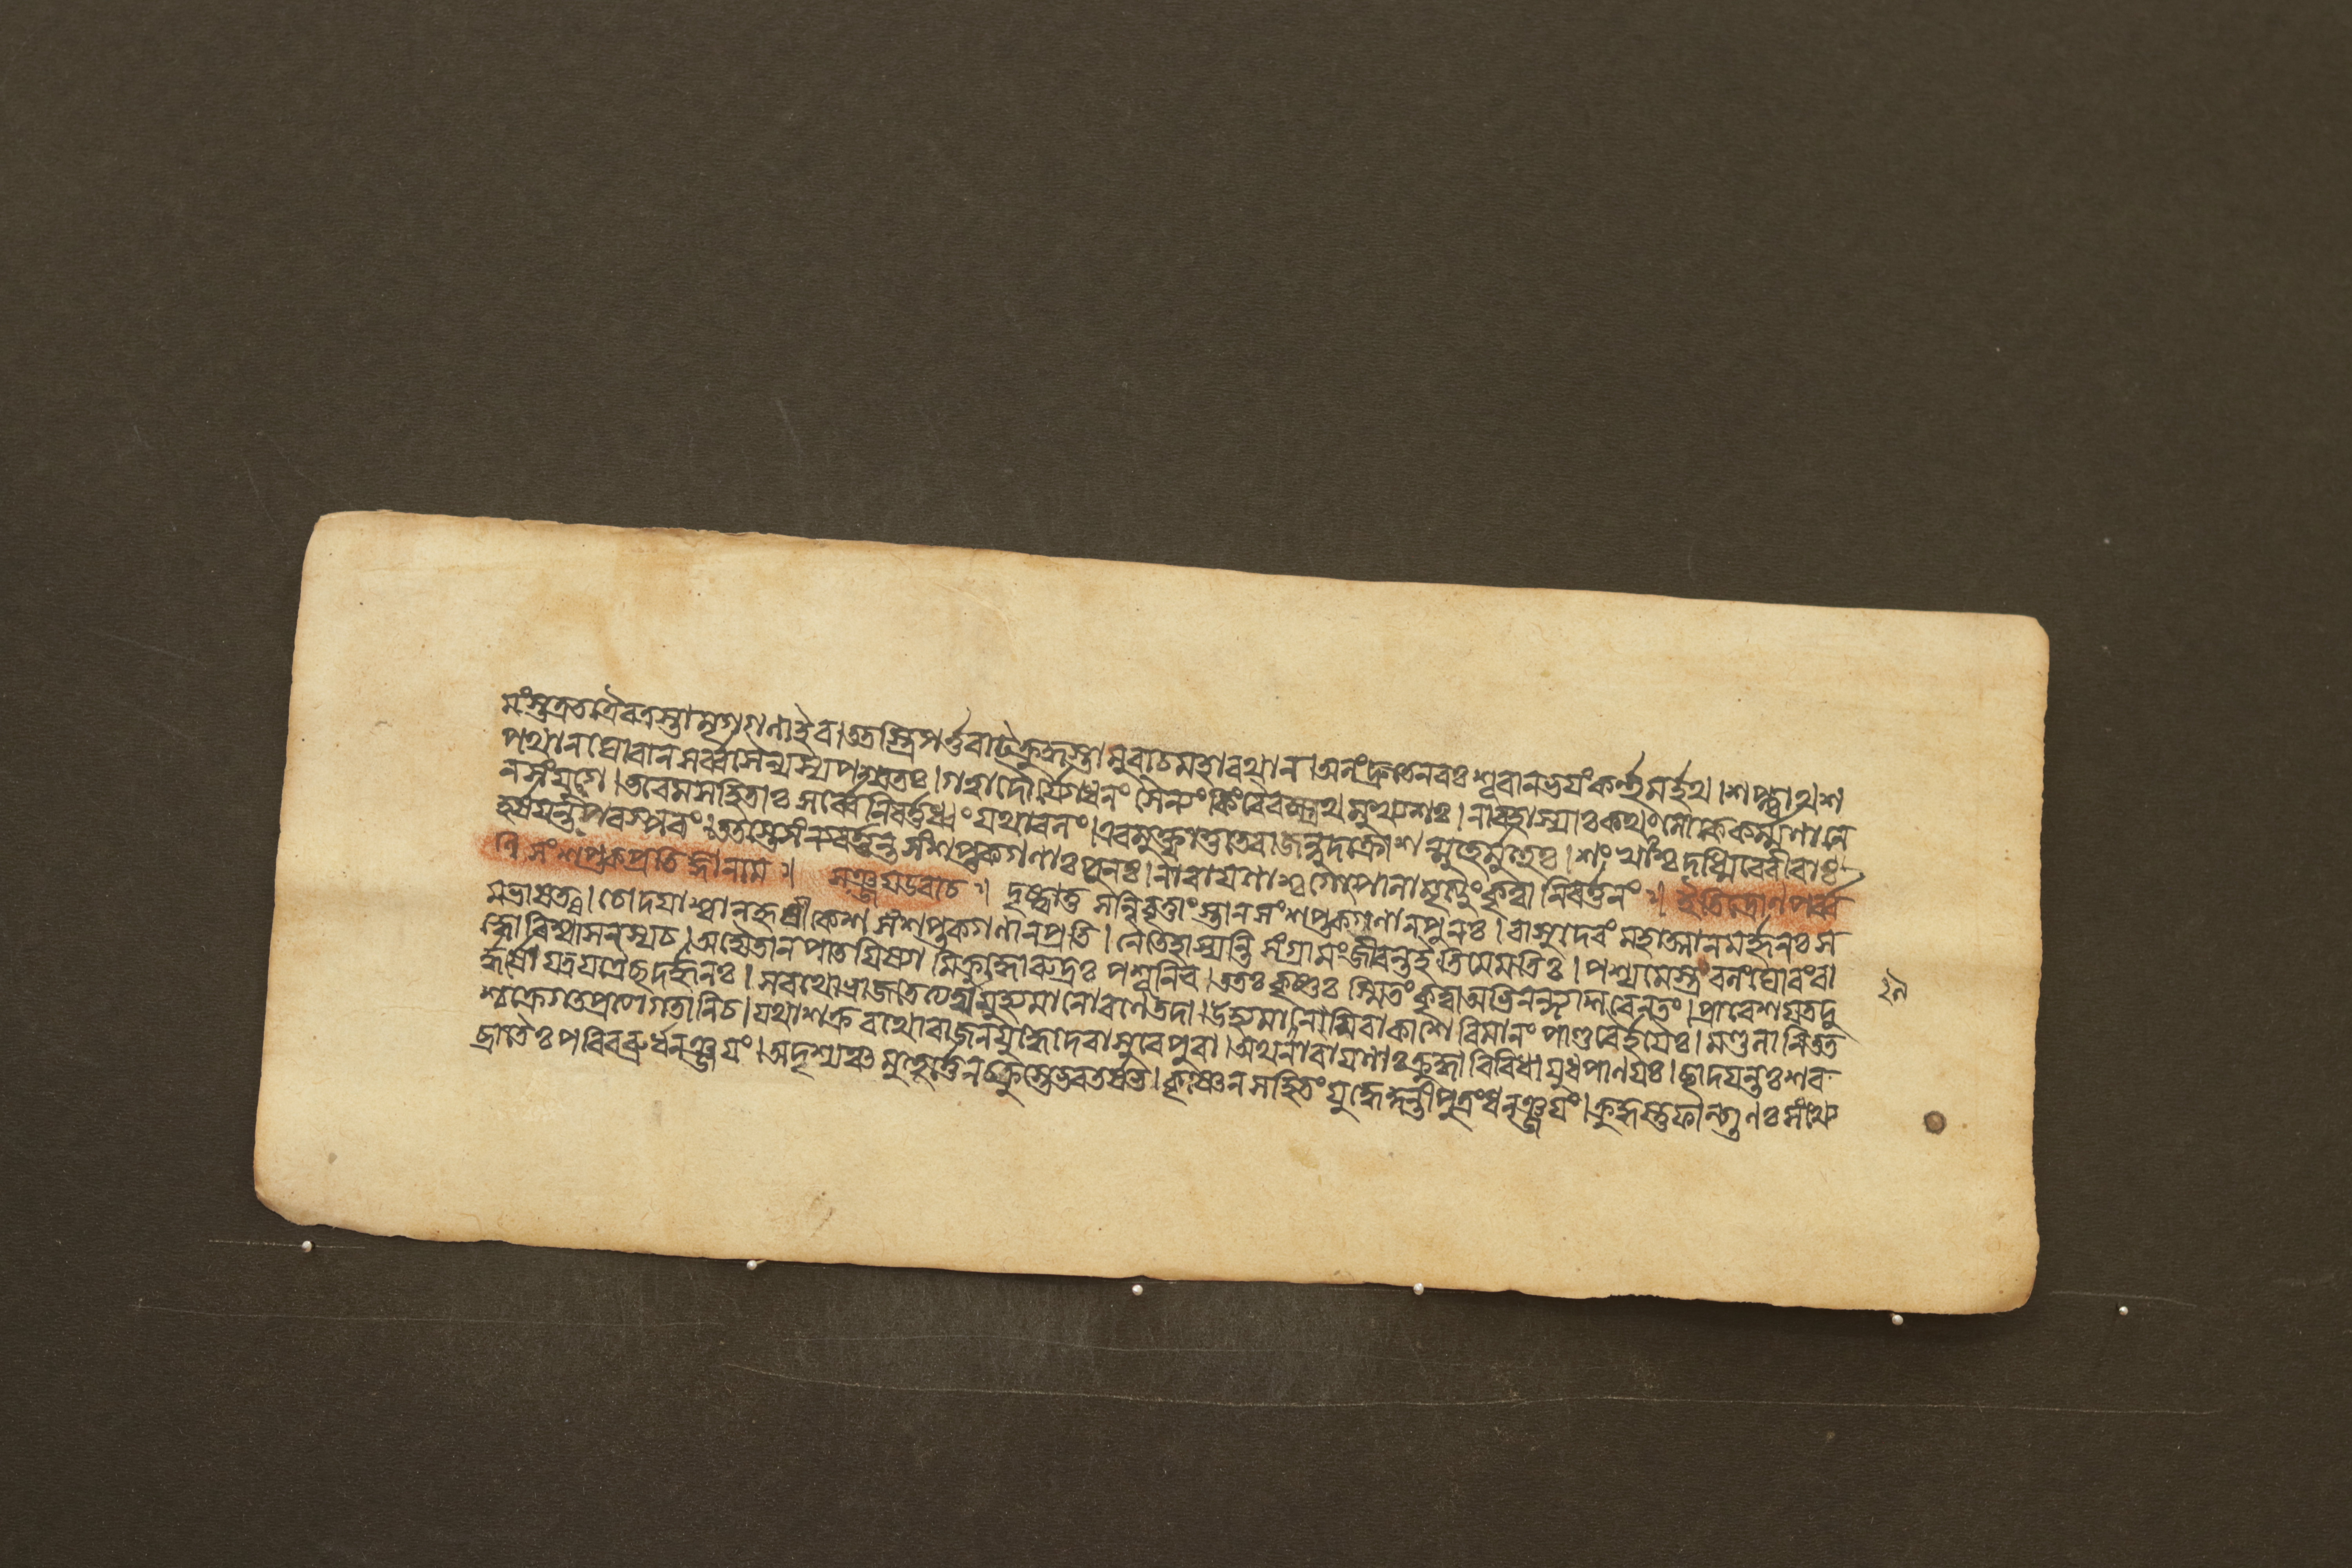 মংস্তত্রতত্রৈবত্রস্তামৃগগণাইব।ততস্ত্রিগর্ত্তরাট্ক্রুদ্ধস্তানুবাচমহারথান।অলংদ্রুতেনবঃশূরানভয়ংকর্ত্তুমর্হথ।শপ্ত্বাথশ
পথানঘোরানসর্ব্বসৈন্যস্যপশ্যতঃ।গত্বাদৌর্যোধনংসৈন্যংকিংবৈবক্ষ্যথমুখ্যশঃ।নাবহাস্যাঃকথংলোকেকর্ম্মণানে
নসংযুগে।ভবেমসহিতাঃসর্ব্বেনিবর্ত্তধ্বংযথাবলং।এবমুক্তাস্তুতেরাজন্নুদক্রোশন্মুহুর্মুহুঃ।শংখাংশ্চদধ্মিরেবীরাঃ
হর্ষয়ন্তঃপরস্পরং।ততস্তেসংন্যবর্ত্তন্তসংশপ্তকগণাঃপুনঃ।নারায়ণাশ্চগোপালামৃত্যুংকৃত্বানিবর্ত্তনং॥ইতিদ্রোণপর্ব্ব
ণিসংশপ্তকপ্রতিজ্ঞানাম॥ সঞ্জয়উবাচ॥ দৃষ্ট্বাতুসন্নিবৃত্তাংস্তানসংশপ্তকগণানপুনঃ।বাসুদেবংমহাত্মানমর্জ্জুনঃস
মভাষত।চোদয়াশ্বানহৃষীকেশসংশপ্তকগণানপ্রতি।নৈতেহাস্যন্তিসংগ্রামংজীবন্তইতিমেমতিঃ।পশ্যমেস্ত্রবলংঘোরংবা
হ্বোরিষ্বাসনস্যচ।অদ্যৈতানপাতয়িষ্যামিক্রুদ্ধোরুদ্রঃপশূনিব।ততঃকৃষ্ণঃস্মিতংকৃত্বাঅভিনন্দ্যশিবেনতং।প্রাবেশয়তদু
র্দ্ধর্ষোযত্রযত্রৈছদর্জ্জুনঃ।সরথোভ্রাজতেত্যর্থমুহ্যমানোরণেতদা।উহ্যমানমিবাকাশেবিমানংপাণ্ডুরৈর্হয়ৈঃ।মণ্ডলানিতত
শ্চক্রেগতপ্রত্যাগতানিচ।যথাশক্ররথোরাজনযুদ্ধেদেবাসুরেপুরা।অথনারায়ণাঃক্রুদ্ধাবিবিধায়ুধপাণয়ঃ।ছাদয়ন্তঃশর
ব্রাতৈঃপরিবব্রুর্ধনঞ্জয়ং।অদৃশ্যঞ্চমুহূর্ত্তেনচক্রুস্তেভরতর্ষভ।কৃষ্ণেনসহিতংযুদ্ধেকুন্তীপুত্রংধনঞ্জয়ং।ক্রুদ্ধস্তুফাল্গুণঃসংখ্যে
২৯